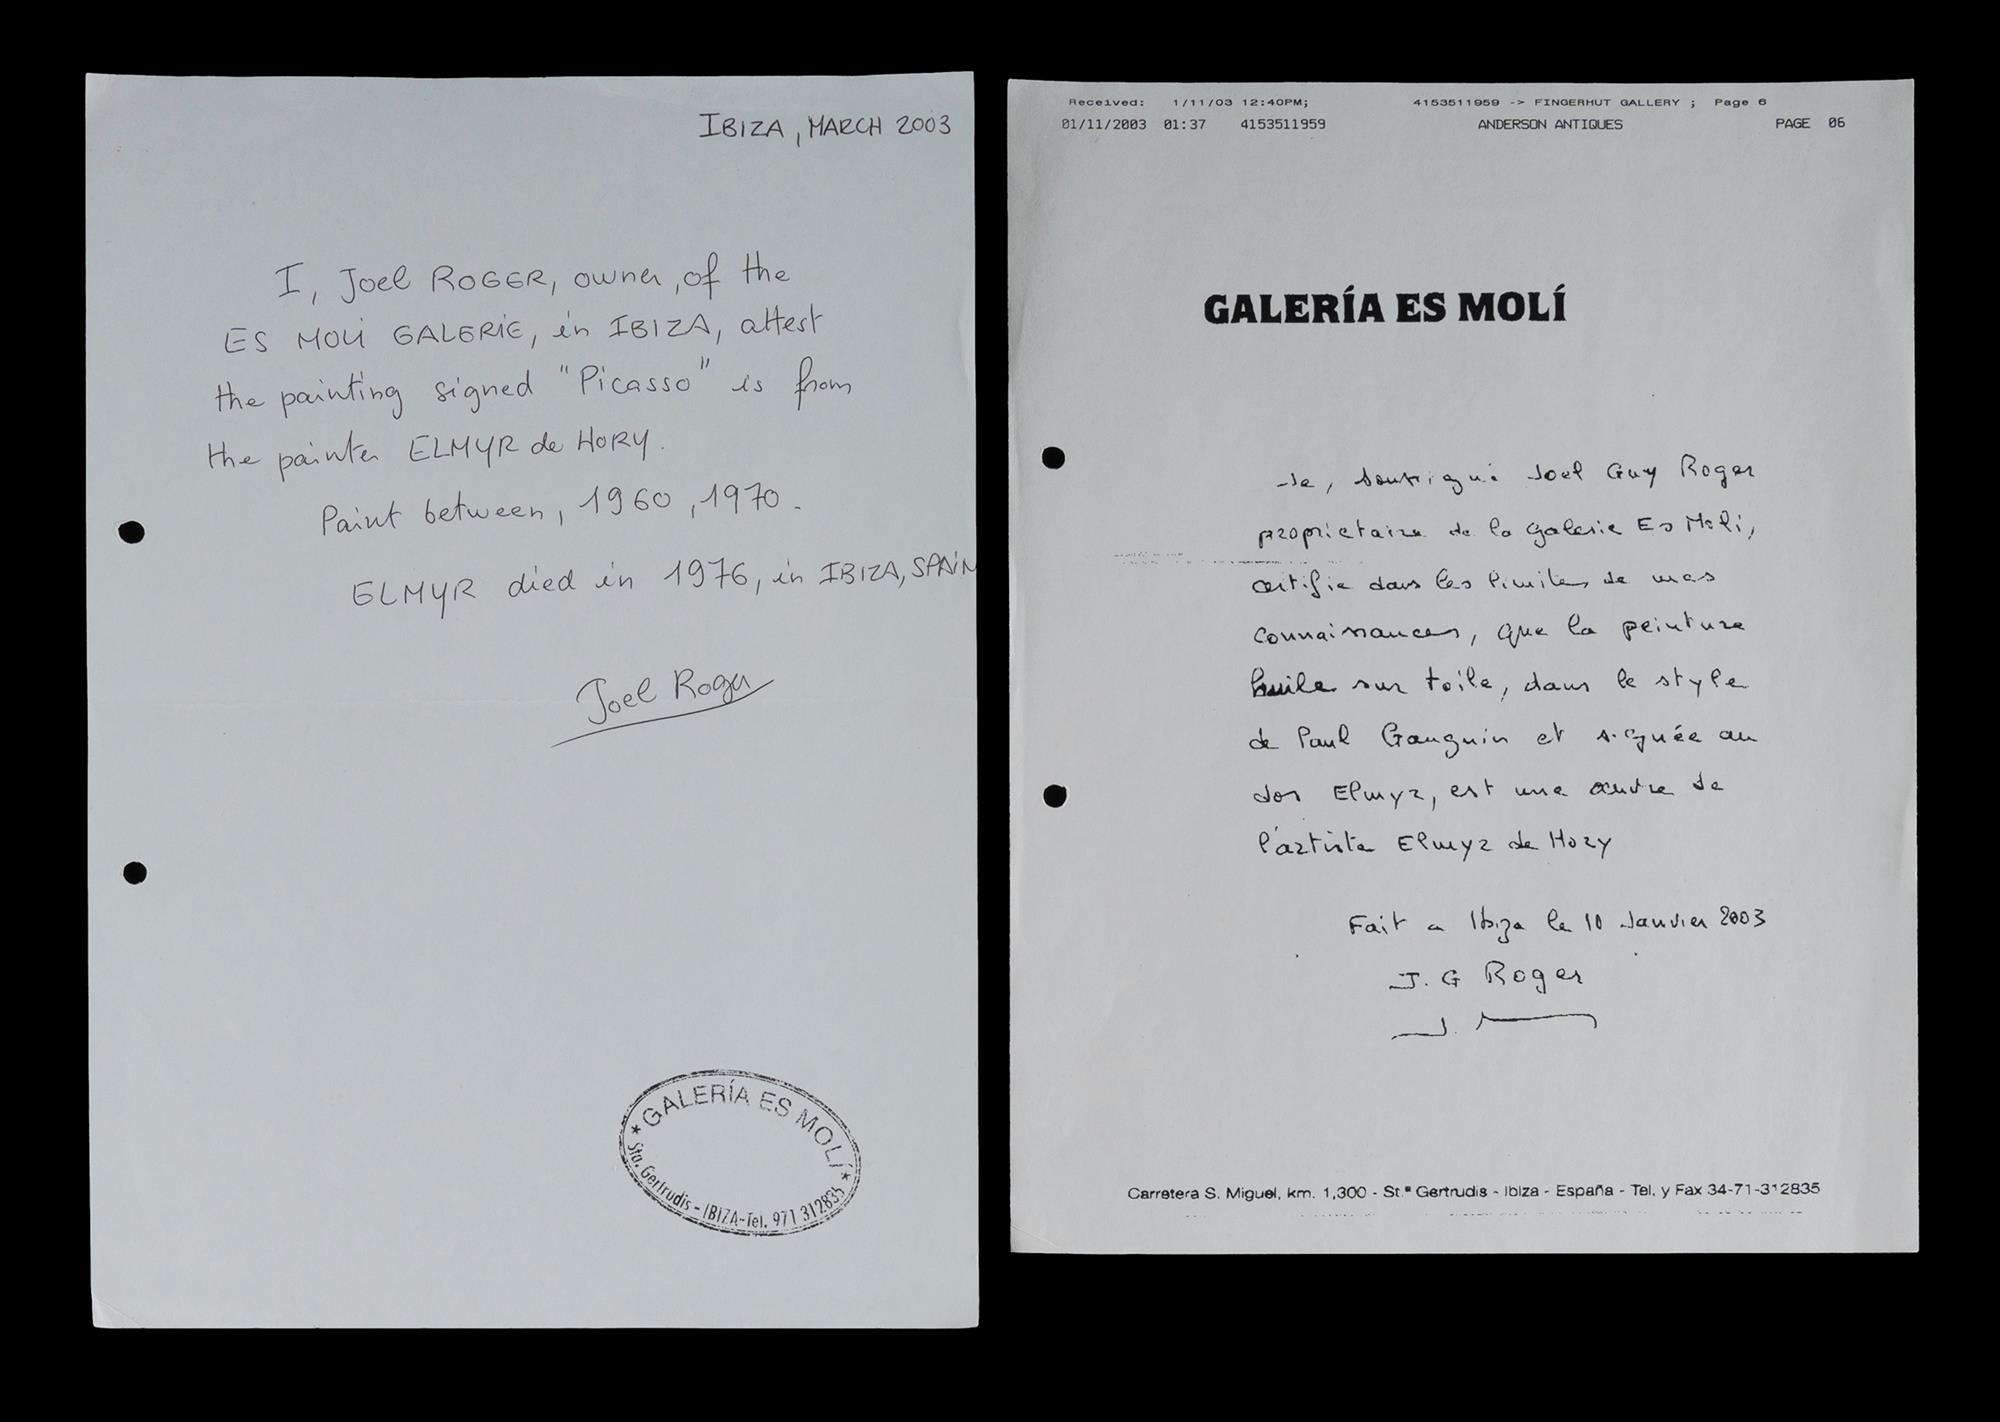 IBIZA, MARCH 2003
I, Joel ROGER, owner, of the
ES MOLI GALERIE, in IBIZA, attest
the painting signed "Picasso" is from
the painter ELMYR de HORY.
Paint between, 1960, 1970.
ELMYR died in 1976, in IBIZA, SPAIN
Joel Roger
* GALERÍA ES MOLÍ *
Sta. Gertrudis - IBIZA - Tel. 971 312835
Received: 1/11/03 12:40PM; 4153511959 -> FINGERHUT GALLERY ; Page 6
01/11/2003 01:37 4153511959 ANDERSON ANTIQUES PAGE 06
GALERÍA ES MOLÍ
Je, soussigné Joel Guy Roger
proprietaire de la galerie Es Moli,
certifie dans les limites de mes
connaissances, que la peinture
huile sur toile, dans le style
de Paul Gauguin et signée au
dos Elmyr, est une œuvre de
l'artiste Elmyr de Hory
Fait a Ibiza le 10 Janvier 2003
J. G Roger
Carretera S. Miguel, km. 1,300 - St.ª Gertrudis - Ibiza - España - Tel. y Fax 34-71-312835